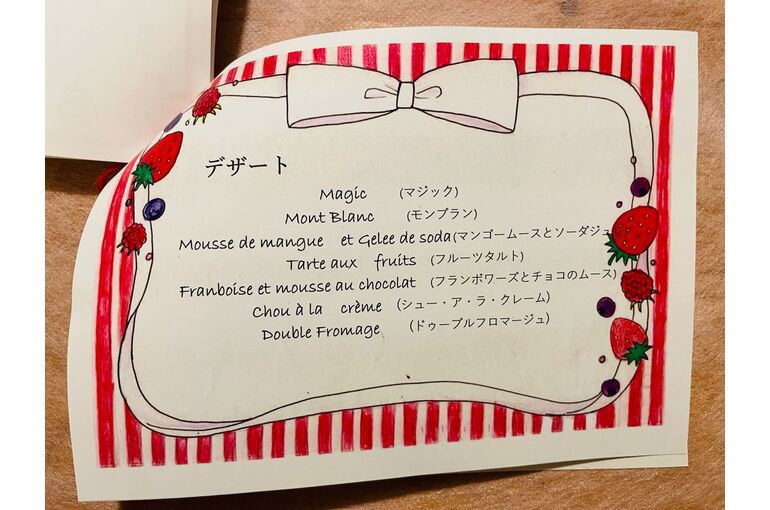 デザート
Magic (マジック)
Mont Blanc (モンブラン)
Mousse de mangue et Gelee de soda(マンゴームースとソーダジュ
Tarte aux fruits (フルーツタルト)
Franboise et mousse au chocolat (フランボワーズとチョコのムース)
Chou à la crème (シュー・ア・ラ・クレーム)
Double Fromage (ドゥーブルフロマージュ)